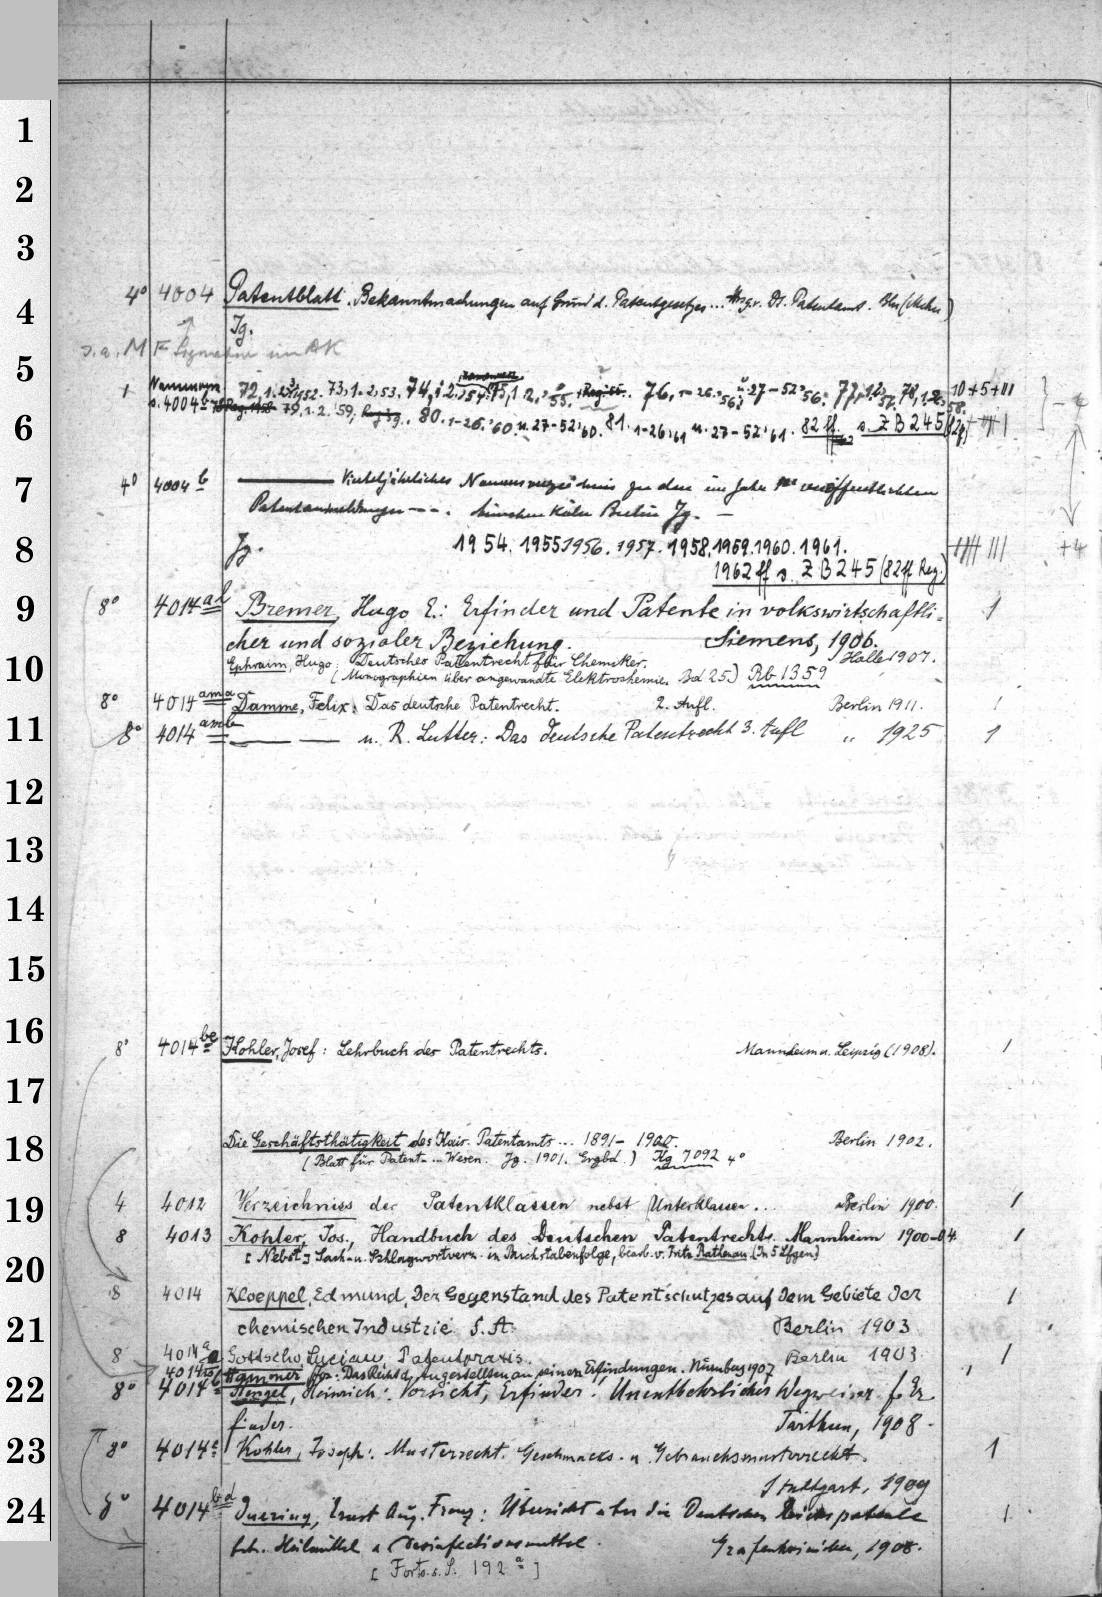 1
2
3
4° 4004 Patentblatt. Bekanntmachungen auf Grund d. Patentgesetzes... Hrsg. v. Dt. Patentamt.
4
Jg.
s. a. M F Signatur im AK
5
1 72, 1. 2, 1952. 73, 1. 2, 53. 74, 1. 2, 54. 75, 1. 2, 55. Reg. 55. 76, 1-26, 56; u. 27-52, 56. 77, 1. 2, 57. 78, 1. 2, 58. 10+5+III
s. 4004 b Reg. 1958 79, 1. 2. '59, 80. 1-26, '60. u. 27-52, '60. 81. 1-26, '61 u. 27-52, '61. 82 ff s. ZB 245 (82 ff)
6
7
4° 4004 b Vierteljährliches Namensverzeichnis zu den im Jahre veröffentlichten
Patentanmeldungen - - - . München Köln Berlin Jg. -
8
Jg. 1954. 1955 1956. 1957. 1958. 1959. 1960. 1961. +4
1962 ff s. ZB 245 (82 ff Reg.)
9
8° 4014 ad Bremer, Hugo E.: Erfinder und Patente in volkswirtschaftli- 1
cher und sozialer Beziehung. Siemens, 1906.
10
Ephraim, Hugo: Deutsches Patentrecht für Chemiker. Halle 1907.
(Monographien über angewandte Elektrochemie. Bd 25) Rb 1359
8° 4014 ama Damme, Felix: Das deutsche Patentrecht. 2. Aufl. Berlin 1911. 1
11
8° 4014 amb — — u. R. Lutter: Das deutsche Patentrecht 3. Aufl „ 1925 1
12
13
14
15
16
8° 4014 be Kohler, Josef: Lehrbuch des Patentrechts. Mannheim u. Leipzig (1908). 1
17
18
Die Geschäftsthätigkeit des Kais. Patentamts ... 1891- 1900. Berlin 1902.
(Blatt für Patent- ... Wesen. Jg. 1901. Ergbd.) Kg 7092 4°
19
4 4012 Verzeichniss der Patentklassen nebst Unterklassen... Berlin 1900. 1
8 4013 Kohler, Jos., Handbuch des Deutschen Patentrechts. Mannheim 1900-04. 1
[Nebst] Sach- u. Schlagwortverz. in Buchstabenfolge, bearb. v. Fritz Rathenau. (In 5 Lfgen)
20
8 4014 Kloeppel, Edmund, Der Gegenstand des Patentschutzes auf dem Gebiete der 1
21
chemischen Industrie S. A. Berlin 1903
8 4014 a Gottscho, Lucian, Patentpraxis. Berlin 1903. 1
Hammer Das Recht d. Angestellten an seinen Erfindungen. Nürnberg 1907
22
8° 4014 Stengel, Heinrich: Vorsicht, Erfinder! Unentbehrlicher Wegweiser f. Er
finder. 1908.
23
8° 4014 c Kohler, Joseph: Musterrecht. Geschmacks- u. Gebrauchsmusterrecht. 1
Stuttgart, 1909
24
8° 4014 bd Duering, Ernst Aug. Franz: Übersicht über die Deutschen Reichspatente 1
betr. Heilmittel u. Desinfectionsmittel. Gräfenhainichen, 1908.
[Forts. s. S. 192 a]